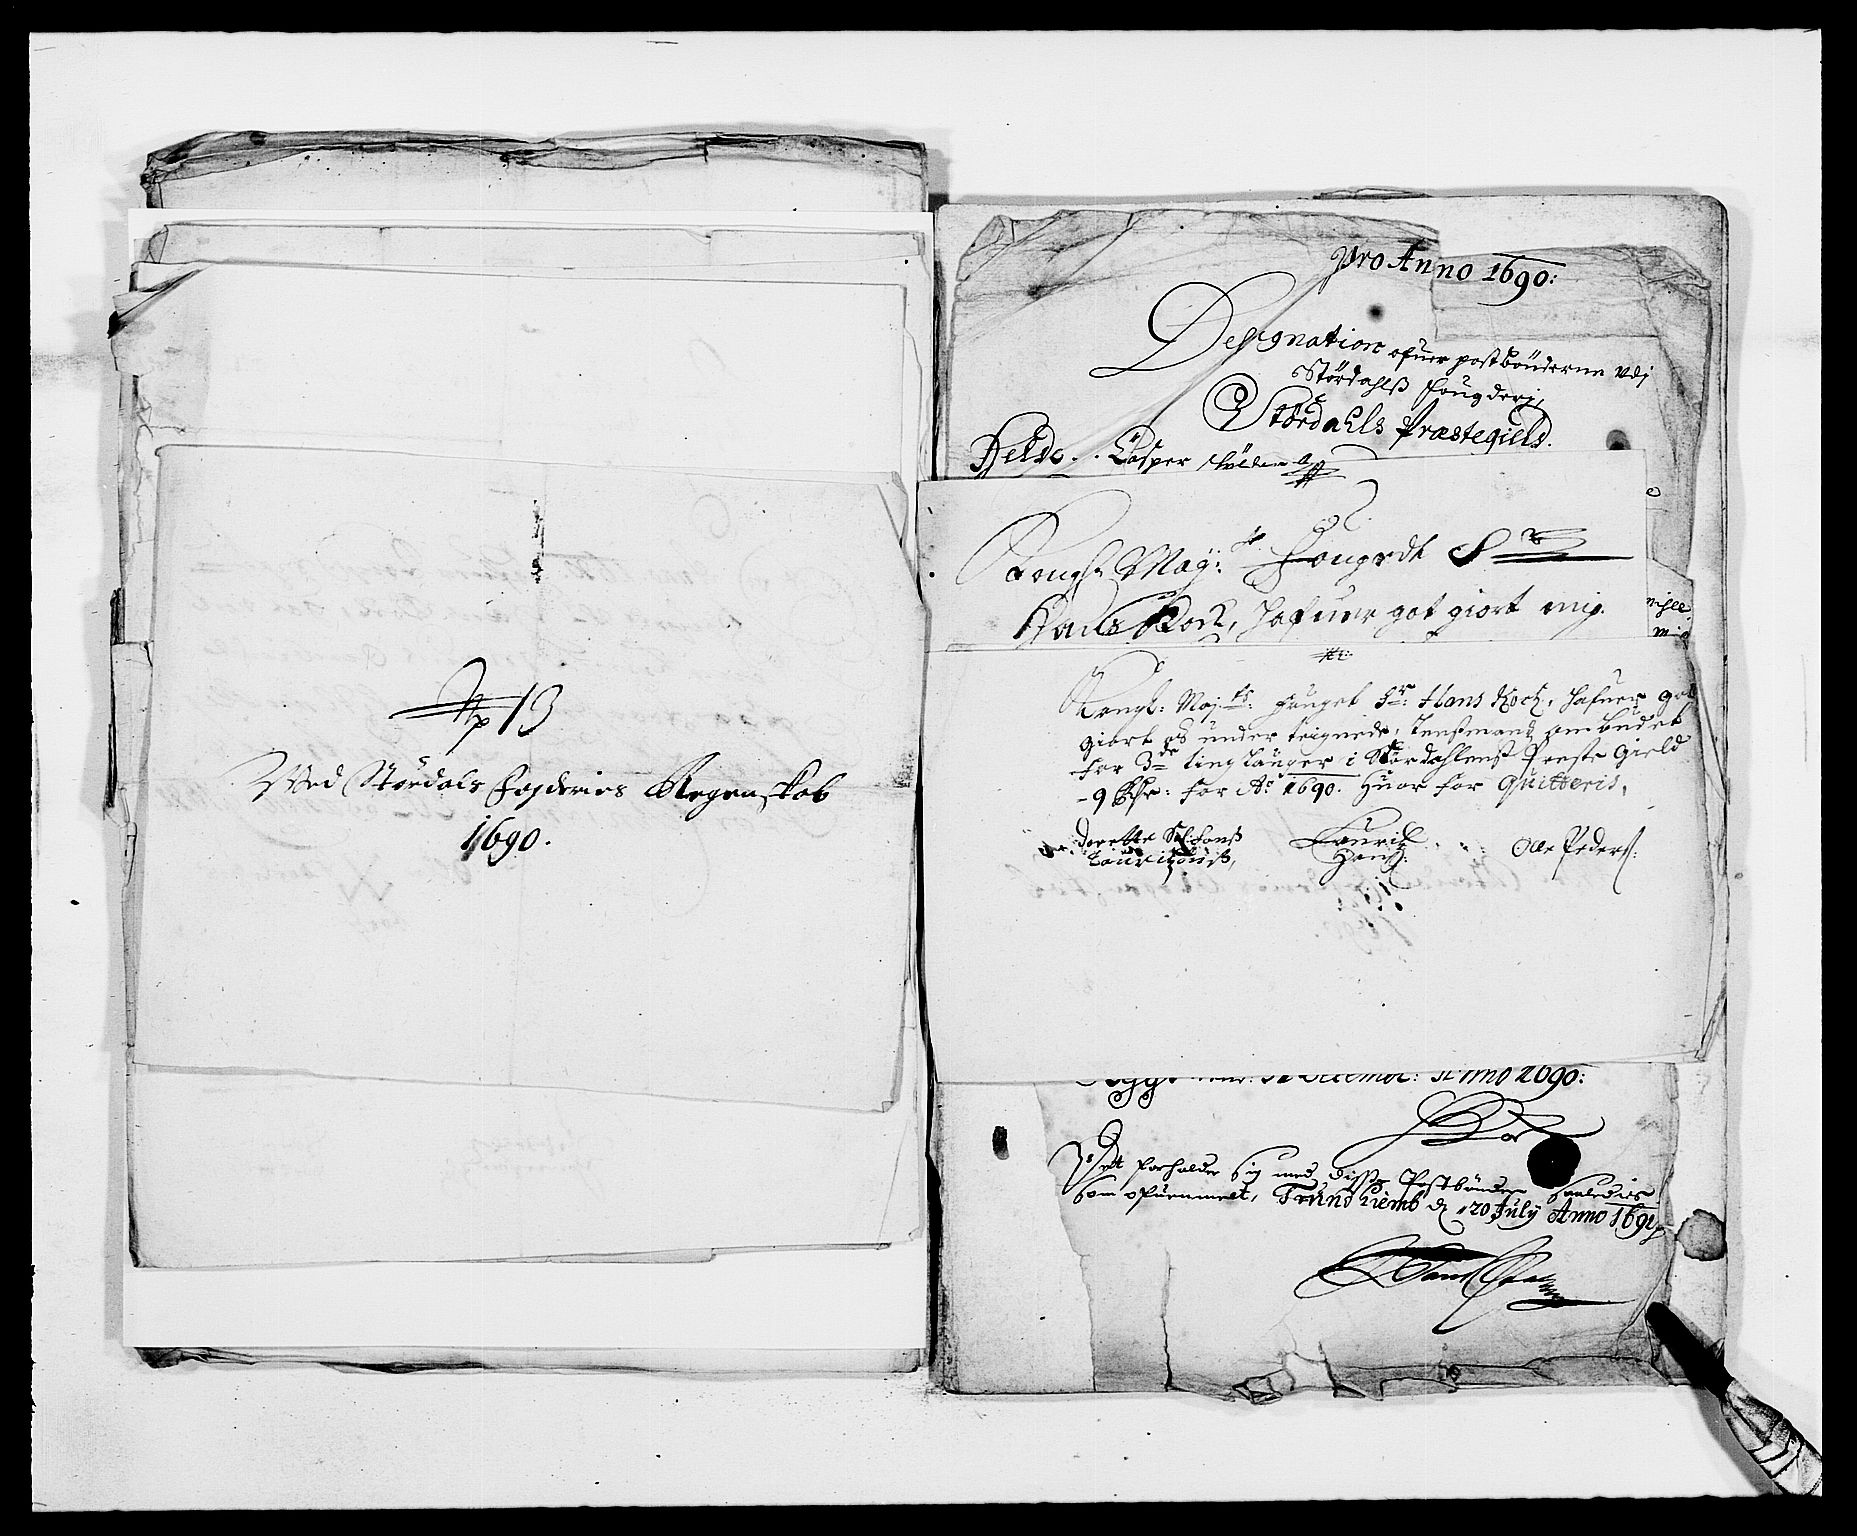 No 13
Med Størdals Fogderies Regenskob
1690.
Pro Anno 1690:
Designation ofuer postbønderne udj
Størdahlß fougderj,
Størdahls Præstegield.
Helde.. Casper
Kongl: May: Fougedt Sr
Hans Kock, hafuer got giort mig
Kongl: Maj:ts: fouget Sr: Hans Kock, hafuer got
giort os under teignede, Lenßmænd ombudet
for 3de tinglauger i Størdahlens Preste gield
- 9 Rdr: for Ao 1690. Huor for quitteris,
Dorette Sl: Hans
Lauritzøns,
Lauritz
Hans:
Olle Peders:
Decemb: Anno 1690:
Det forholder sig med disse Postbønder saaledies
som ofuenmelt, Trundhiemb d 20 July Anno 1691